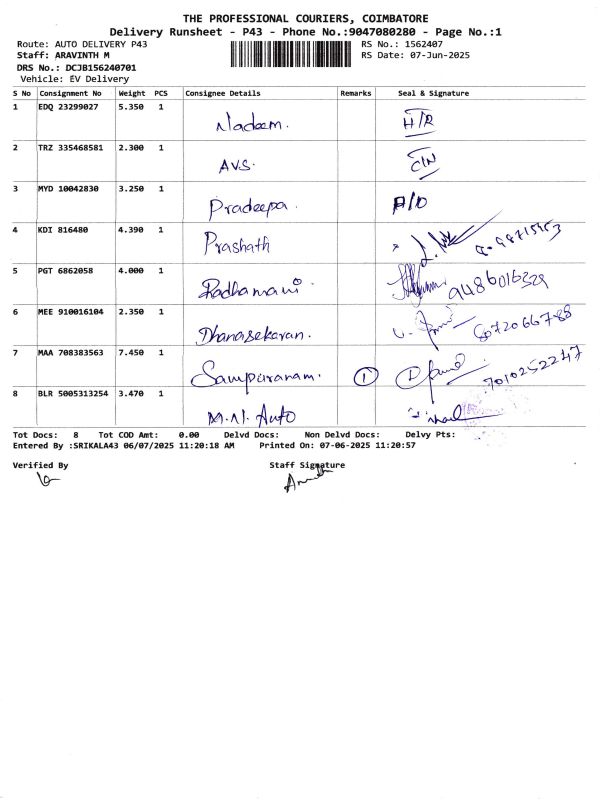 THE PROFESSIONAL COURIERS, COIMBATORE
Delivery Runsheet - P43 - Phone No.:9047080280 - Page No.:1
Route: AUTO DELIVERY P43 RS No.: 1562407
Staff: ARAVINTH M RS Date: 07-Jun-2025
DRS No.: DCJB156240701
Vehicle: EV Delivery
S No Consignment No Weight PCS Consignee Details Remarks Seal & Signature
1 EDQ 23299027 5.350 1 Nadeem. H/R
2 TRZ 335468581 2.300 1 AVS. C/N
3 MYD 10042830 3.250 1 Pradeepa. A/D
4 KDI 816480 4.390 1 Prashath
5 PGT 6862058 4.000 1 Radhamani. 9486016329
6 MEE 910016104 2.350 1 Dhanasekaran. 8072066788
7 MAA 708383563 7.450 1 Sampuranam. 1 7010252247
8 BLR 5005313254 3.470 1 M.N. Auto
Tot Docs: 8 Tot COD Amt: 0.00 Delvd Docs: Non Delvd Docs: Delvy Pts:
Entered By :SRIKALA43 06/07/2025 11:20:18 AM Printed On: 07-06-2025 11:20:57
Verified By Staff Signature